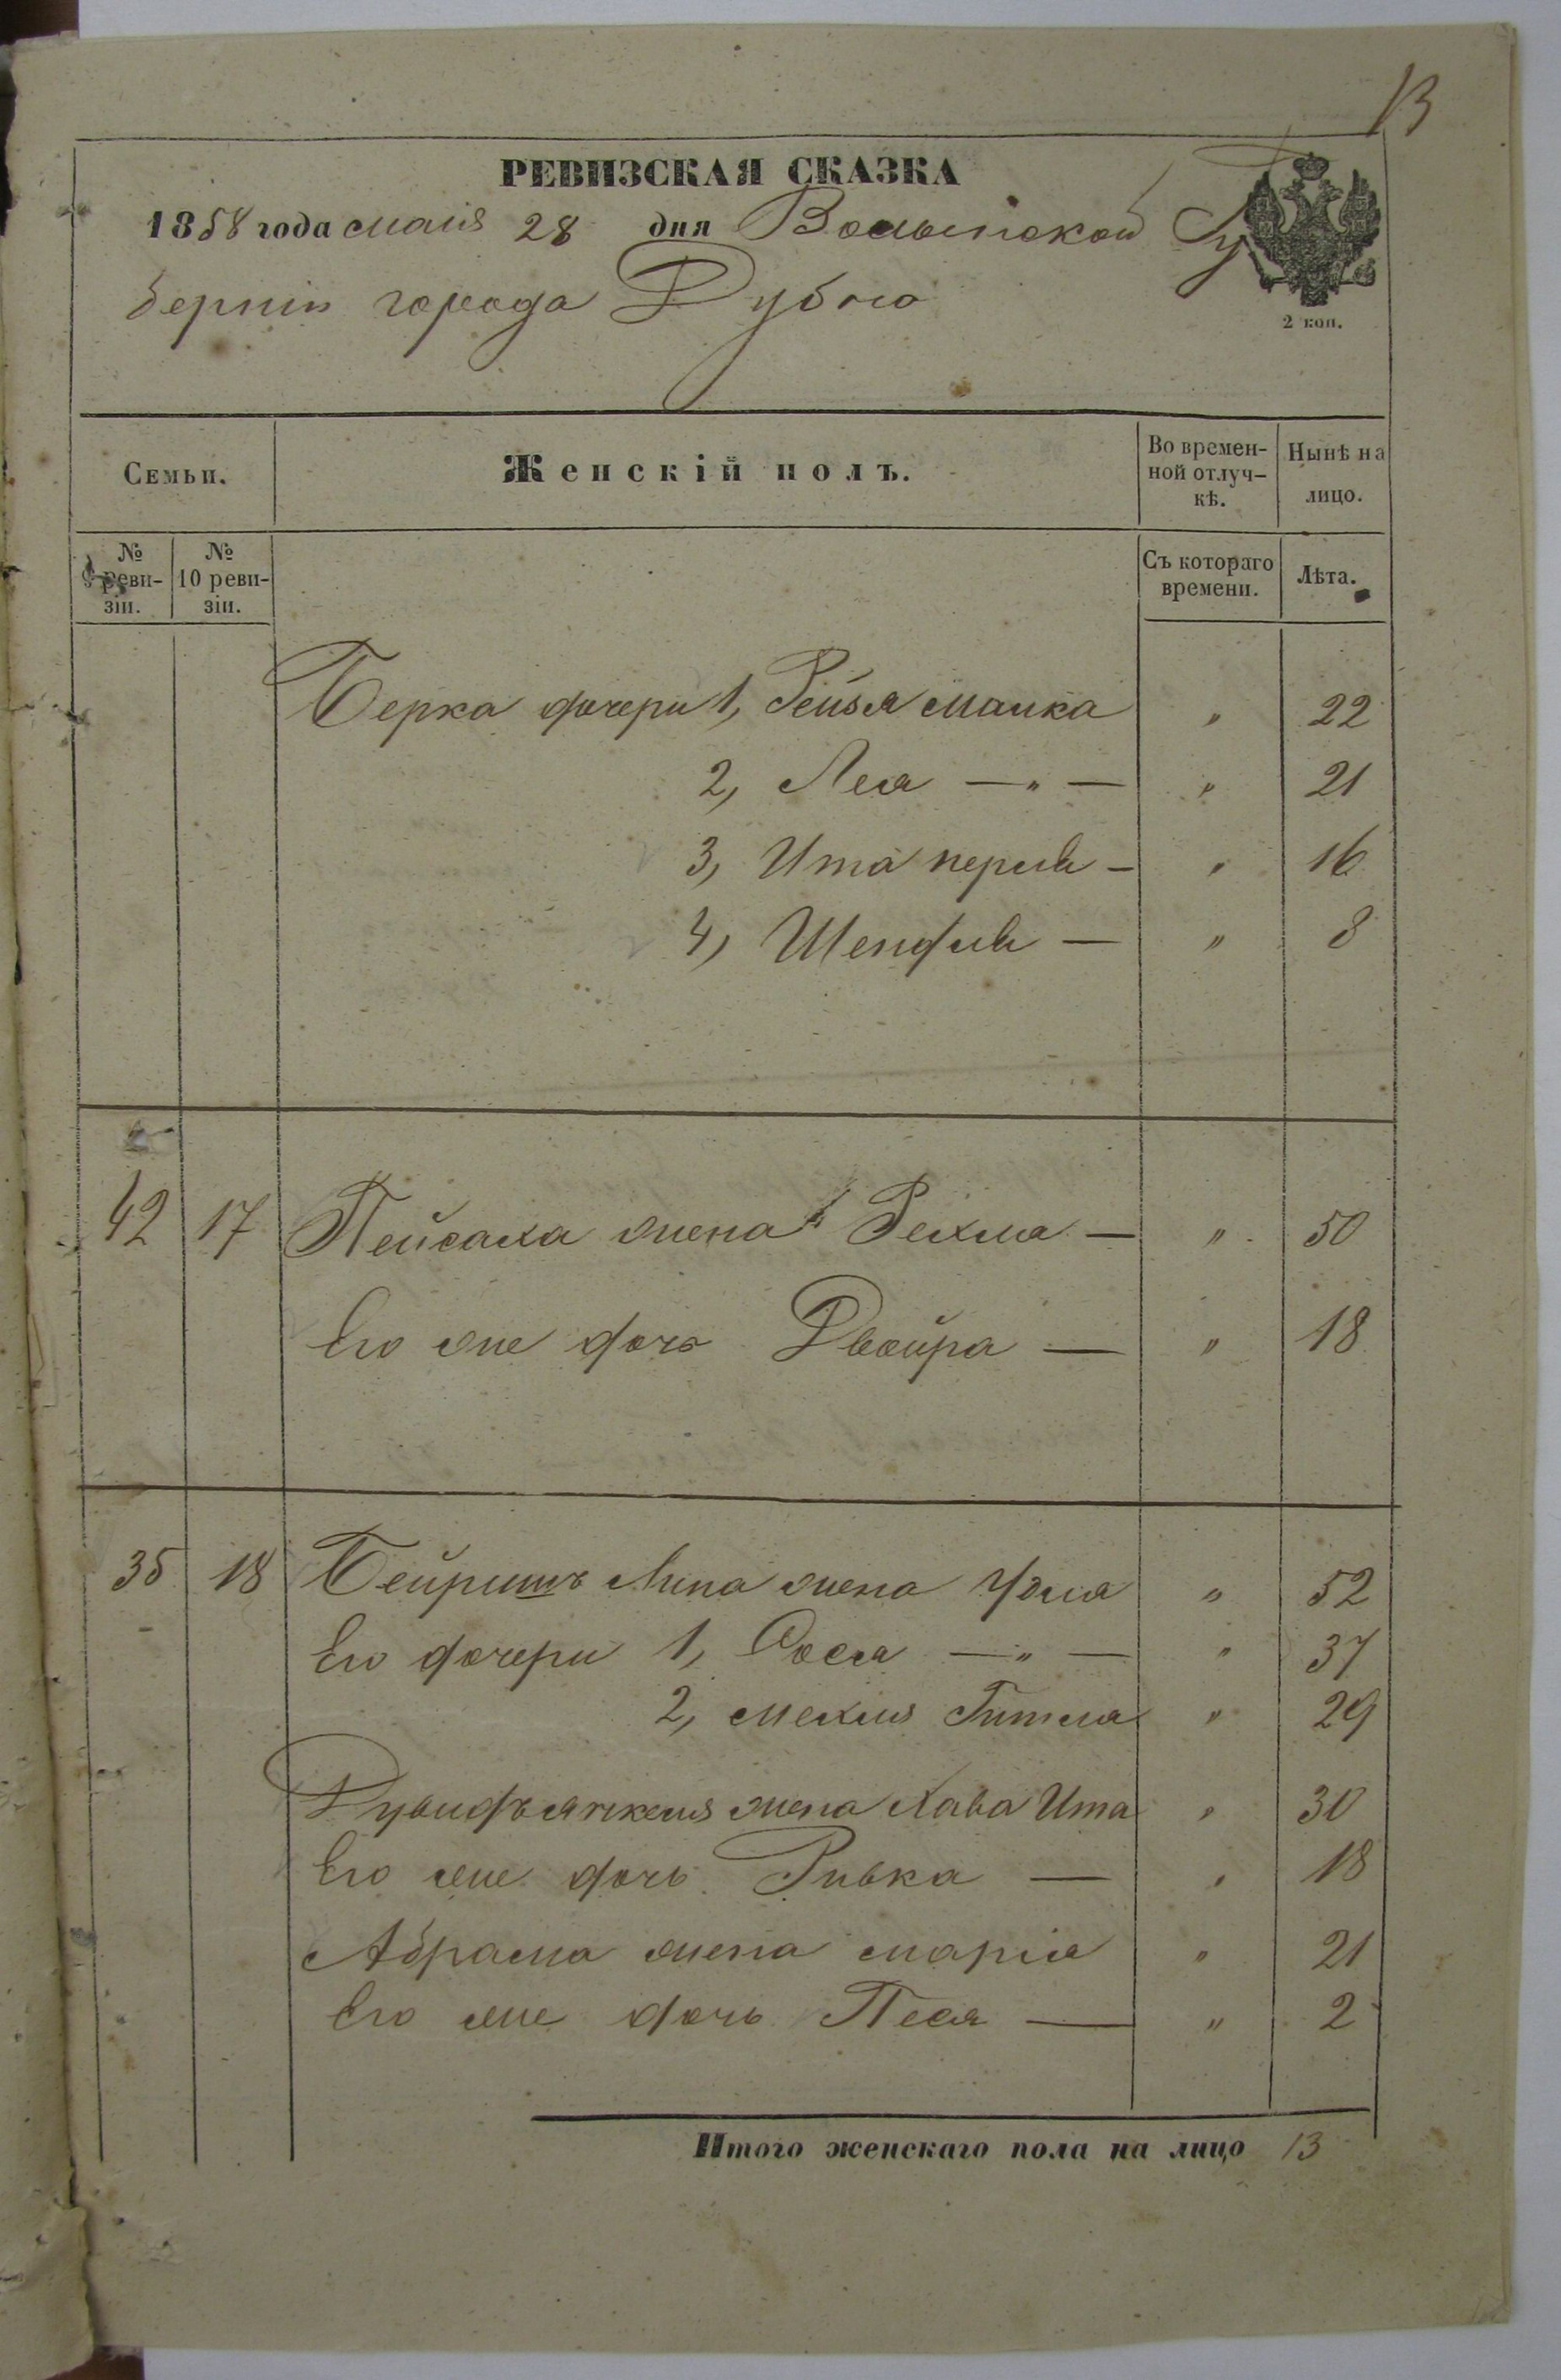 13
РЕВИЗСКАЯ СКАЗКА
1858 года маія 28 дня Волынской Гу
берніи города Дубно
2 коп.
Семьи.
Женскій полъ.
Во времен-
ной отлуч-
кѣ.
Нынѣ на
лицо.
№
9 реви-
зіи.
№
10 реви-
зіи.
Съ котораго
времени.
Лѣта.
Берка дочери 1, Рейзя Малка " 22
2, Лея — " — " 21
3, Ита перля — " 16
4, Шендля — " 8
42 17 Пейсаха жена Рехля — " 50
Его же дочь Двойра — " 18
35 18 Бейришъ Липа жена " 52
Его дочери 1, Сося — " — " 37
2, Мехля Гитля " 29
Дувидъ Янкеля жена Хава Ита " 30
Его же дочь Ривка — " 18
Абрама жена Марія " 21
Его же дочь Песя — " 2
Итого женскаго пола на лицо 13